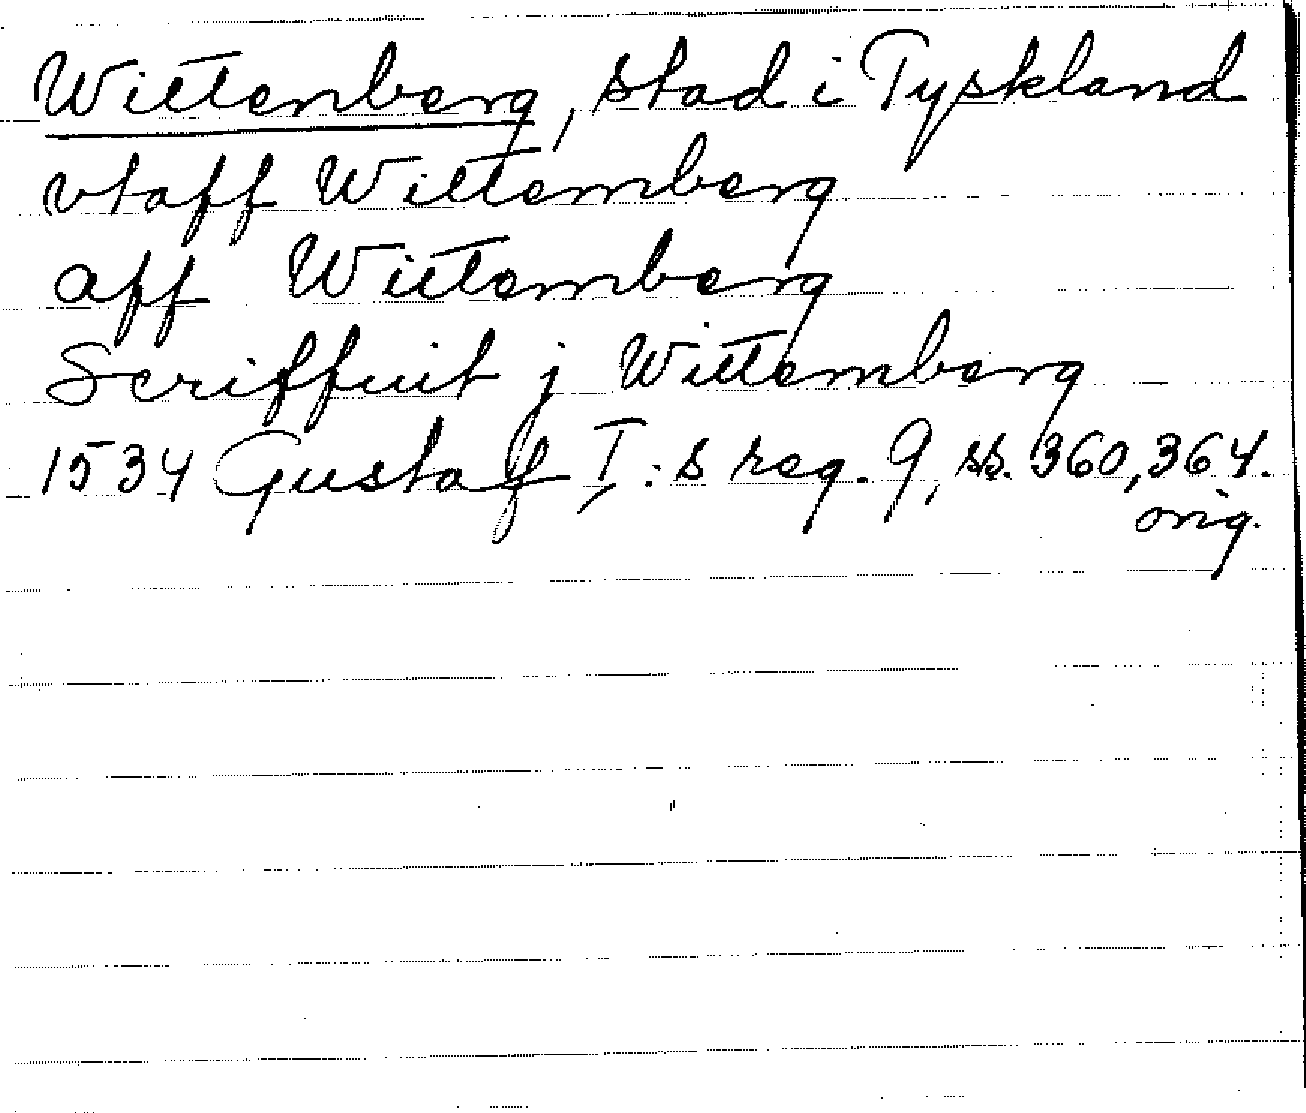 Wittenberg, stad i Tyskland
vtaff Wittemberg
aff Wittemberg
Scriffuit j Wittemberg
1534 Gustaf I:s reg. 9, ss. 360, 364.
orig.